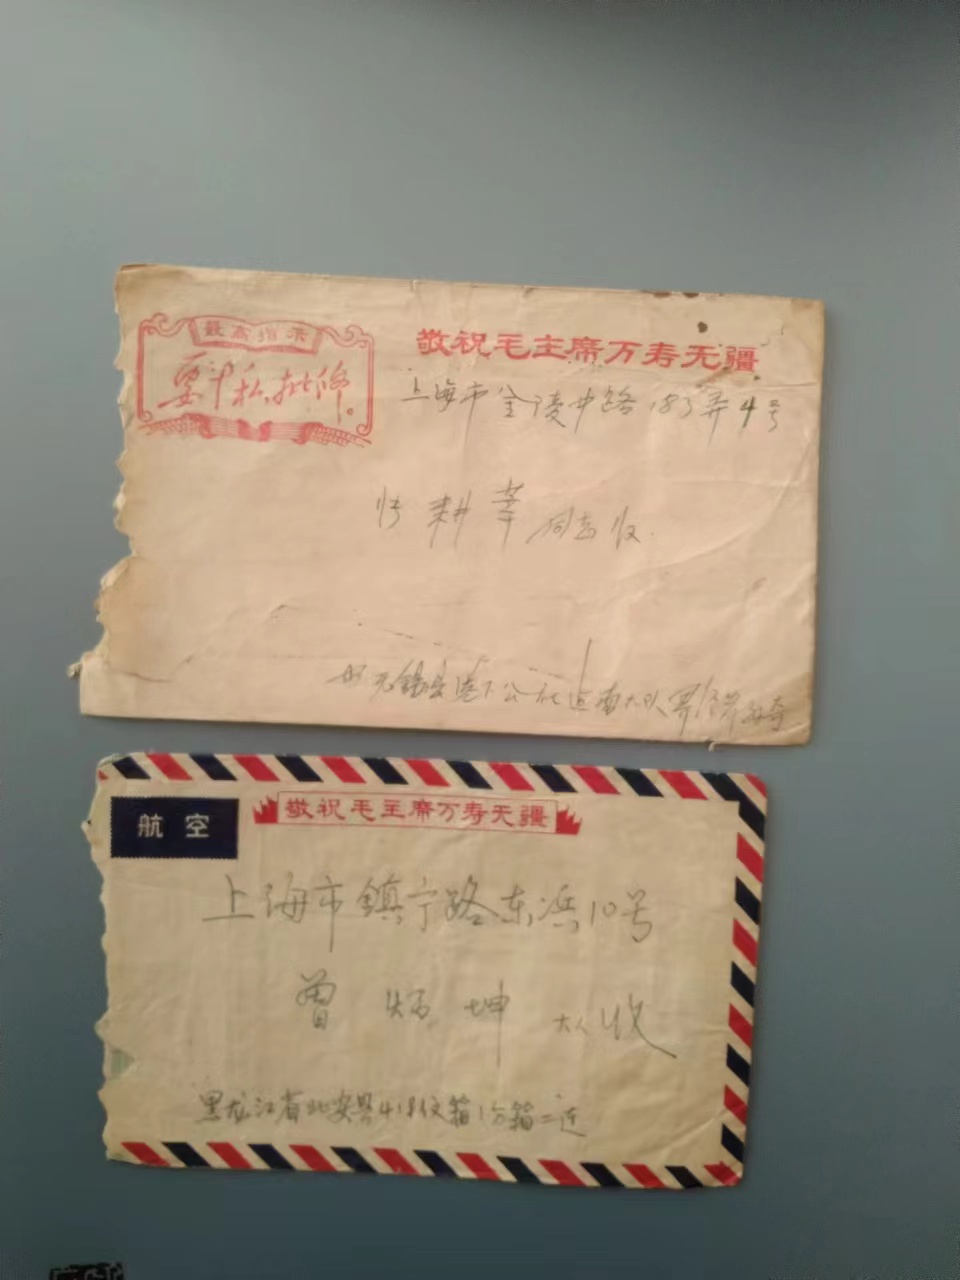 最高指示
要斗私,批修。
敬祝毛主席万寿无疆
上海市金陵中路183弄4号
耕莘同志收
无锡县港下公社
大队
航空
敬祝毛主席万寿无疆
上海市鎮宁路东浜10号
曾炳坤大人收
黑龙江省北安县418信箱1分箱二连